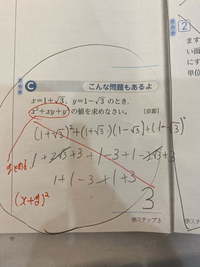 C こんな問題もあるよ
x=1+√3, y=1-√3 のとき,
x²+xy+y² の値を求めなさい。 〔京都〕
(1+√3)²+(1+√3)(1-√3)+(1-√3)²
1+2√3+3+1-3+1-2√3+3
1+1-3+1+3
3
(x+y)²
ステップ3
2
ます
い面
にす
単位